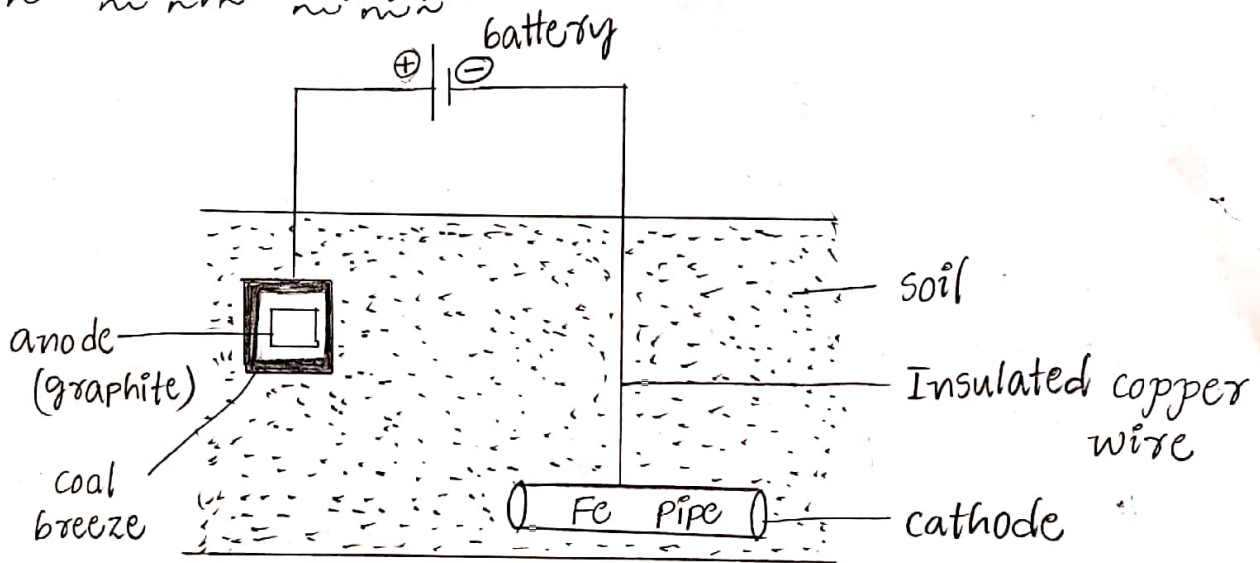 battery
⊕ ⊖
soil
anode
(graphite)
Insulated copper
wire
coal
breeze
Fe Pipe
cathode